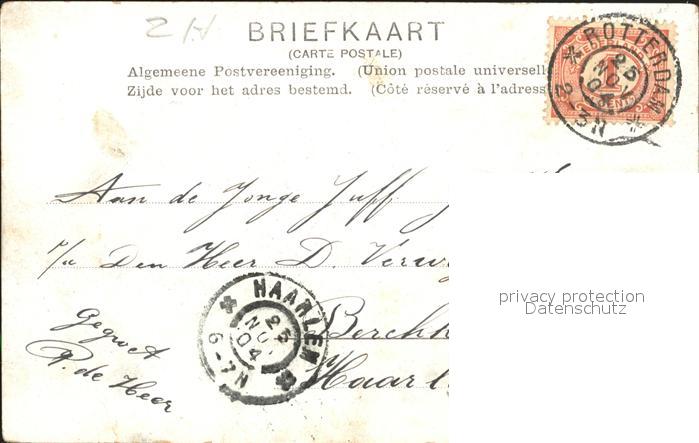 2H
BRIEFKAART
(CARTE POSTALE)
Algemeene Postvereeniging. (Union postale universelle
Zijde voor het adres bestemd. (Côté réservé à l'adress
NEDERLAND
1
CENT
ROTTERDAM
25
NOV
2-3N
Aan de Jonge Juff
p/a Den Heer D. Verw
Berckh
Haarl
HAARLEM
25
NOV
04
6-7N
Gegroet
P. de Heer
privacy protection
Datenschutz